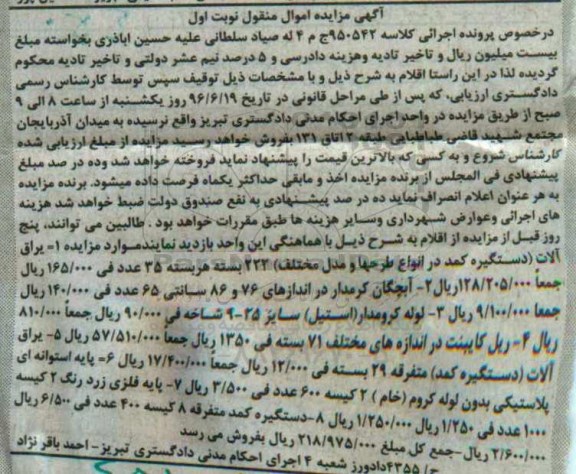 آگهی مزایده اموال منقول نوبت اول
درخصوص پرونده اجرائی کلاسه ۹۵۰۵۴۲ج م ۴ له صیاد سلطانی علیه حسین اباذری بخواسته مبلغ
بیست میلیون ریال و تاخیر تادیه وهزینه دادرسی و ۵ درصد نیم عشر دولتی و تاخیر تادیه محکوم
گردیده لذا در این راستا اقلام به شرح ذیل و با مشخصات ذیل توقیف سپس توسط کارشناس رسمی
دادگستری ارزیابی، که پس از طی مراحل قانونی در تاریخ ۹۶/۶/۱۹ روز یکشنبه از ساعت ۸ الی ۹
صبح از طریق مزایده در واحد اجرای احکام مدنی دادگستری تبریز واقع نرسیده به میدان آذربایجان
مجتمع شهید قاضی طباطبایی طبقه ۲ اتاق ۱۳۱ بفروش خواهد رسید مزایده از مبلغ ارزیابی شده
کارشناس شروع و به کسی که بالاترین قیمت را پیشنهاد نماید فروخته خواهد شد وده در صد مبلغ
پیشنهادی فی المجلس از برنده مزایده اخذ و مابقی حداکثر یکماه فرصت داده میشود. برنده مزایده
به هر عنوان اعلام انصراف نماید ده در صد پیشنهادی به نفع صندوق دولت ضبط خواهد شد هزینه
های اجرائی وعوارض شهرداری وسایر هزینه ها طبق مقررات خواهد بود . طالبین می توانند، پنج
روز قبل از مزایده از اقلام به شرح ذیل با هماهنگی این واحد بازدید نمایندموارد مزایده ۱= یراق
آلات (دستگیره کمد در انواع طرحها و مدل مختلف) ۲۲۲ بسته هربسته ۳۵ عدد فی ۱۶۵/۰۰۰ ریال
جمعاً ۱۲۸/۲۰۵/۰۰۰ریال ۲- آبچکان کرمدار در اندازهای ۷۶ و ۸۶ سانتی ۶۵ عدد فی ۱۴۰/۰۰۰ ریال
جمعا ۹/۱۰۰/۰۰۰ ریال ۳- لوله کرومدار(استیل) سایز ۲۵-۹ شاخه فی ۹۰/۰۰۰ ریال جمعاً ۸۱۰/۰۰۰
ریال ۴- ریل کابینت در اندازه های مختلف ۷۱ بسته فی ۱۳۵۰ ریال جمعاً ۵۷/۵۱۰/۰۰۰ ریال ۵- یراق
آلات (دستگیره کمد) متفرقه ۲۹ بسته فی ۱۲/۰۰۰ ریال جمعاً ۱۷/۴۰۰/۰۰۰ ریال ۶= پایه استوانه ای
پلاستیکی بدون لوله کروم (خام ) ۲ کیسه ۶۰۰ عدد فی ۳/۵۰۰ ریال ۷- پایه فلزی زرد رنگ ۲ کیسه
۱۰۰۰ عدد فی ۱/۲۵۰ ریال ۱/۲۵۰/۰۰۰ ریال ۸-دستگیره کمد متفرقه ۸ کیسه ۴۰۰ عدد فی ۶/۵۰۰ ریال
۲/۶۰۰/۰۰۰ ریال-جمع کل مبلغ ۲۱۸/۹۷۵/۰۰۰ ریال بفروش می رسد
ج/ ۴۳۵۵دادورز شعبه ۴ اجرای احکام مدنی دادگستری تبریز- احمد باقر نژاد